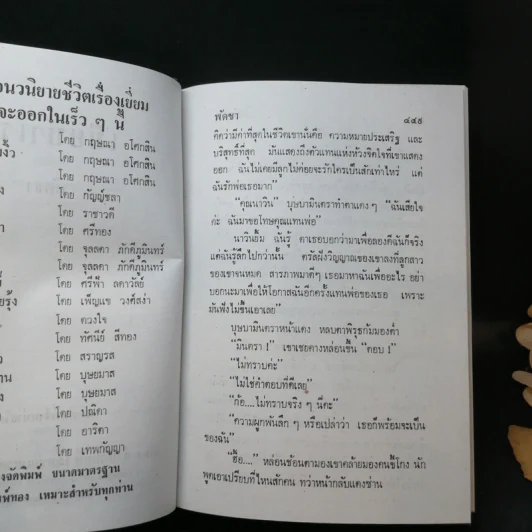 อนวนิยายชีวิตเรื่องเยี่ยม
จะออกในเร็ว ๆ นี้
โดย กฤษณา อโศกสิน
โดย กฤษณา อโศกสิน
โดย กฤษณา อโศกสิน
โดย กัญญ์ชลา
โดย ราชาวดี
โดย ศรีทอง
โดย จุลลดา ภักดีภูมินทร์
โดย จุลลดา ภักดีภูมินทร์
โดย ศรีฟ้า ลดาวัลย์
โดย เพ็ญแข วงศ์สง่า
โดย ดวงใจ
โดย ทัศนีย์ สีทอง
โดย สราญรส
โดย บุษยมาส
โดย บุษยมาส
โดย ปณิดา
โดย อาริตา
โดย เทพกัญญา
งจัดพิมพ์ ขนาดมาตรฐาน
พ์ทอง เหมาะสำหรับทุกท่าน
พัดชา
๔๔๙
คิดว่ามีค่าที่สุดในชีวิตเขานั่นคือ ความหมายประเสริฐ และ
บริสุทธิ์ที่สุด มันแสดงถึงตัวแทนแห่งห้วงจิตใจที่เขาแสดง
ออก ฉันไม่เคยมีลูกไม่ค่อยจะรักใครเป็นสักเท่าไหร่ แต่
ฉันรักพ่อเธอมาก"
"คุณนาวิน" บุษบามินตราทำตาแดง ๆ "ฉันเสียใจ
ค่ะ ฉันมาขอโทษคุณแทนพ่อ"
นาวินยิ้ม ฉันรู้ ดาเธอบอกว่ามาเพื่อลองดีฉันก็จริง
แต่ฉันรู้สึกไปกว่านั้น
ของเขาจนหมด สารภาพมาดีๆ เธอมาหาฉันเพื่ออะไร อย่า
บอกนะมาเพื่อให้โอกาสฉันอีกครั้งแทนพ่อของเธอ เพราะ
มันฟังไม่ขึ้นเอาเลย"
บุษบามินตราหน้าแดง หลบตาพิรุธก้มมองต่ำ
"มินตรา !" เขาเชยคางหล่อนขึ้น "ตอบ !"
"ไม่ทราบค่ะ"
"ไม่ใช่คำตอบที่ดีเลยู"
"ก้อ....ไม่ทราบจริง ๆ นี่คะ"
"ความผูกพันลึก ๆ หรือเปล่าว่า เธอก็พร้อมจะเป็น
ของฉัน"
"อื้อ...." หล่อนช้อนตามองเขาคล้ายมองคนขี้โกง นัก
พูดเอาเปรียบที่ไหนสักคน ทว่าหน้ากลับแดงซ่าน